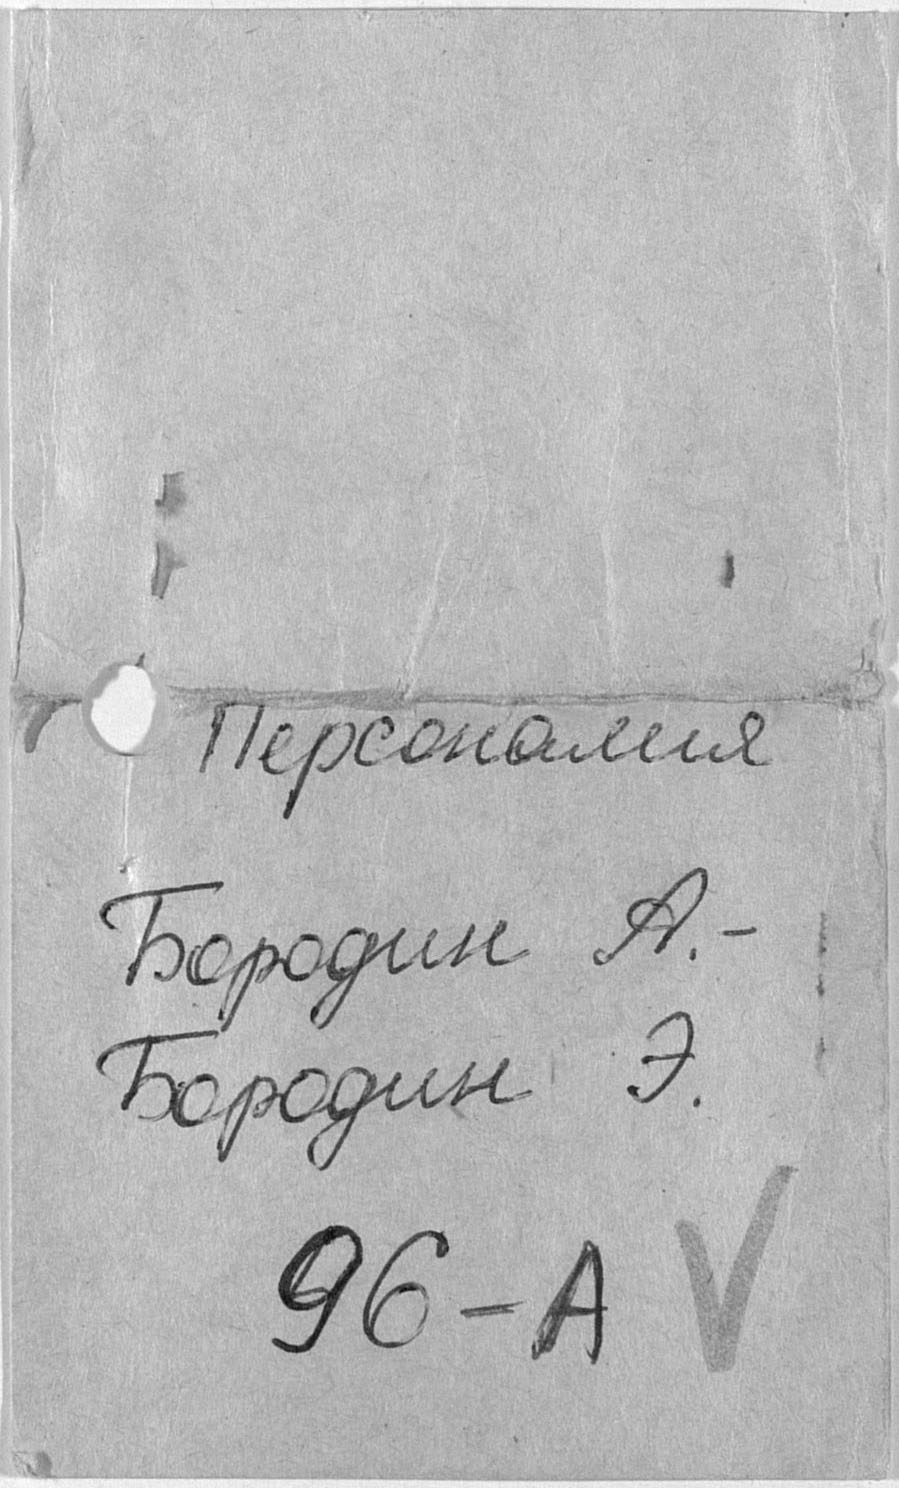 Персоналия
Бородин А.-
Бородин Э.
96-А V